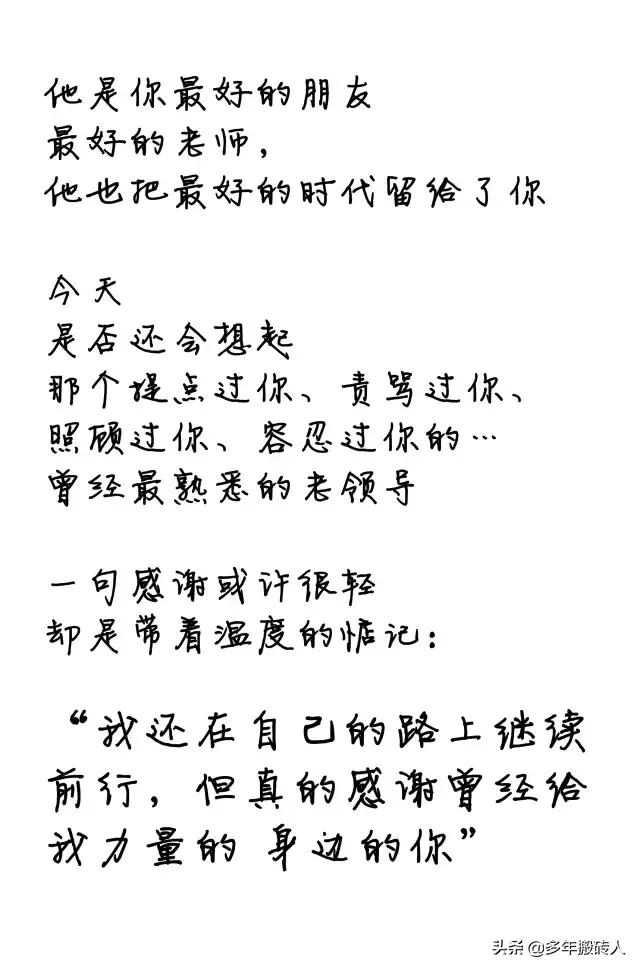 他是你最好的朋友
最好的老师，
他也把最好的时代留给了你
今天
是否还会想起
那个提点过你、责骂过你、
照顾过你、容忍过你的…
曾经最熟悉的老领导
一句感谢或许很轻
却是带着温度的惦记：
“我还在自己的路上继续
前行，但真的感谢曾经给
我力量的 身边的你”
头条 @多年搬砖人